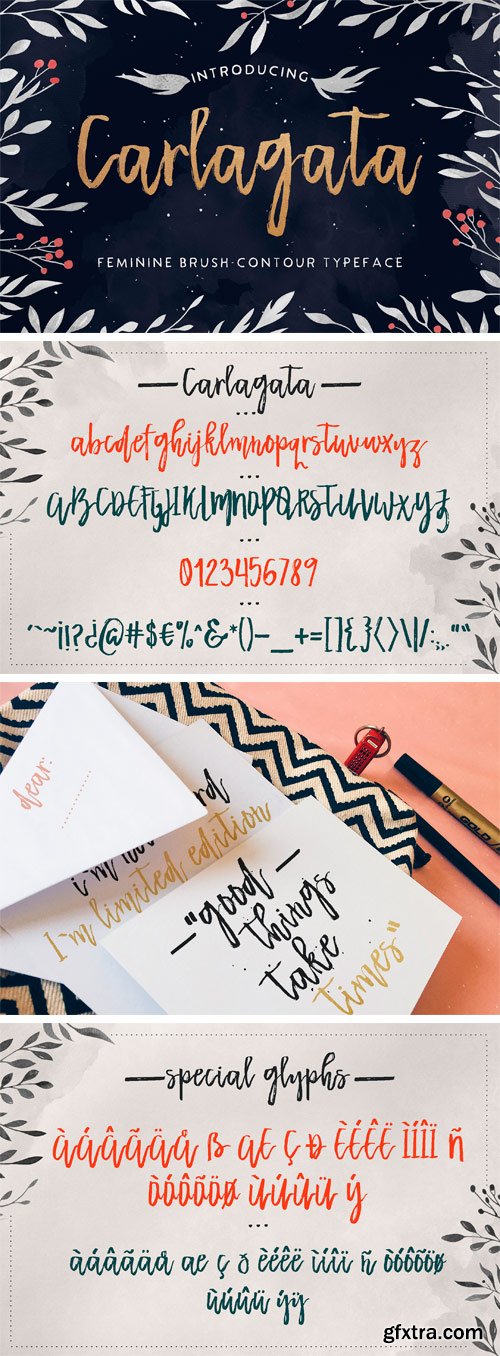 INTRODUCING
Carlagata
FEMININE BRUSH-CONTOUR TYPEFACE
Carlagata
abcdefghijklmnopqrstuvwxyz
ABCDEFGHIJKLMNOPQRSTUVWXYZ
0123456789
´`~¡!?¿@#$€%^&*()-_+=[]{}<>\|/:;,."“
dear:
i'm
I'm limited edition
"good
things
take
times"
GOLD
special glyphs
ÀÁÂÃÄÅ ß Æ Ç Ð ÈÉÊË ÌÍÎÏ Ñ
ÒÓÔÕÖØ ÙÚÛÜ Ý
àáâãäå æ ç ð èéêë ìíîï ñ òóôõöø
ùúûü ýÿ
gfxtra.com